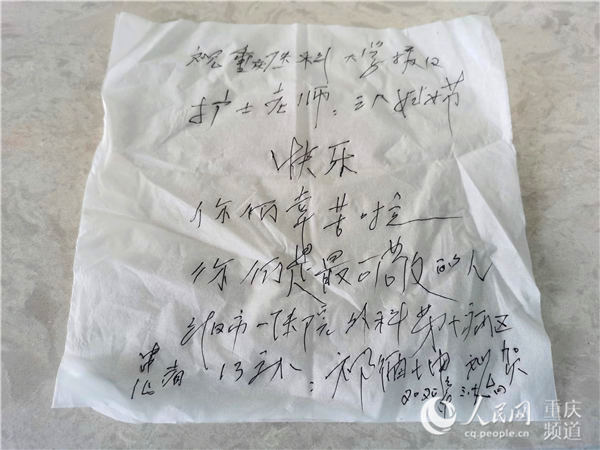 祝重庆医科大学援汉
护士老师：三八妇女节
快乐
你们辛苦啦
你们是最可敬的人
汉市一医院 外科第十病区
患者 13床：
2020年
人民网 重庆
频道
cq.people.cn